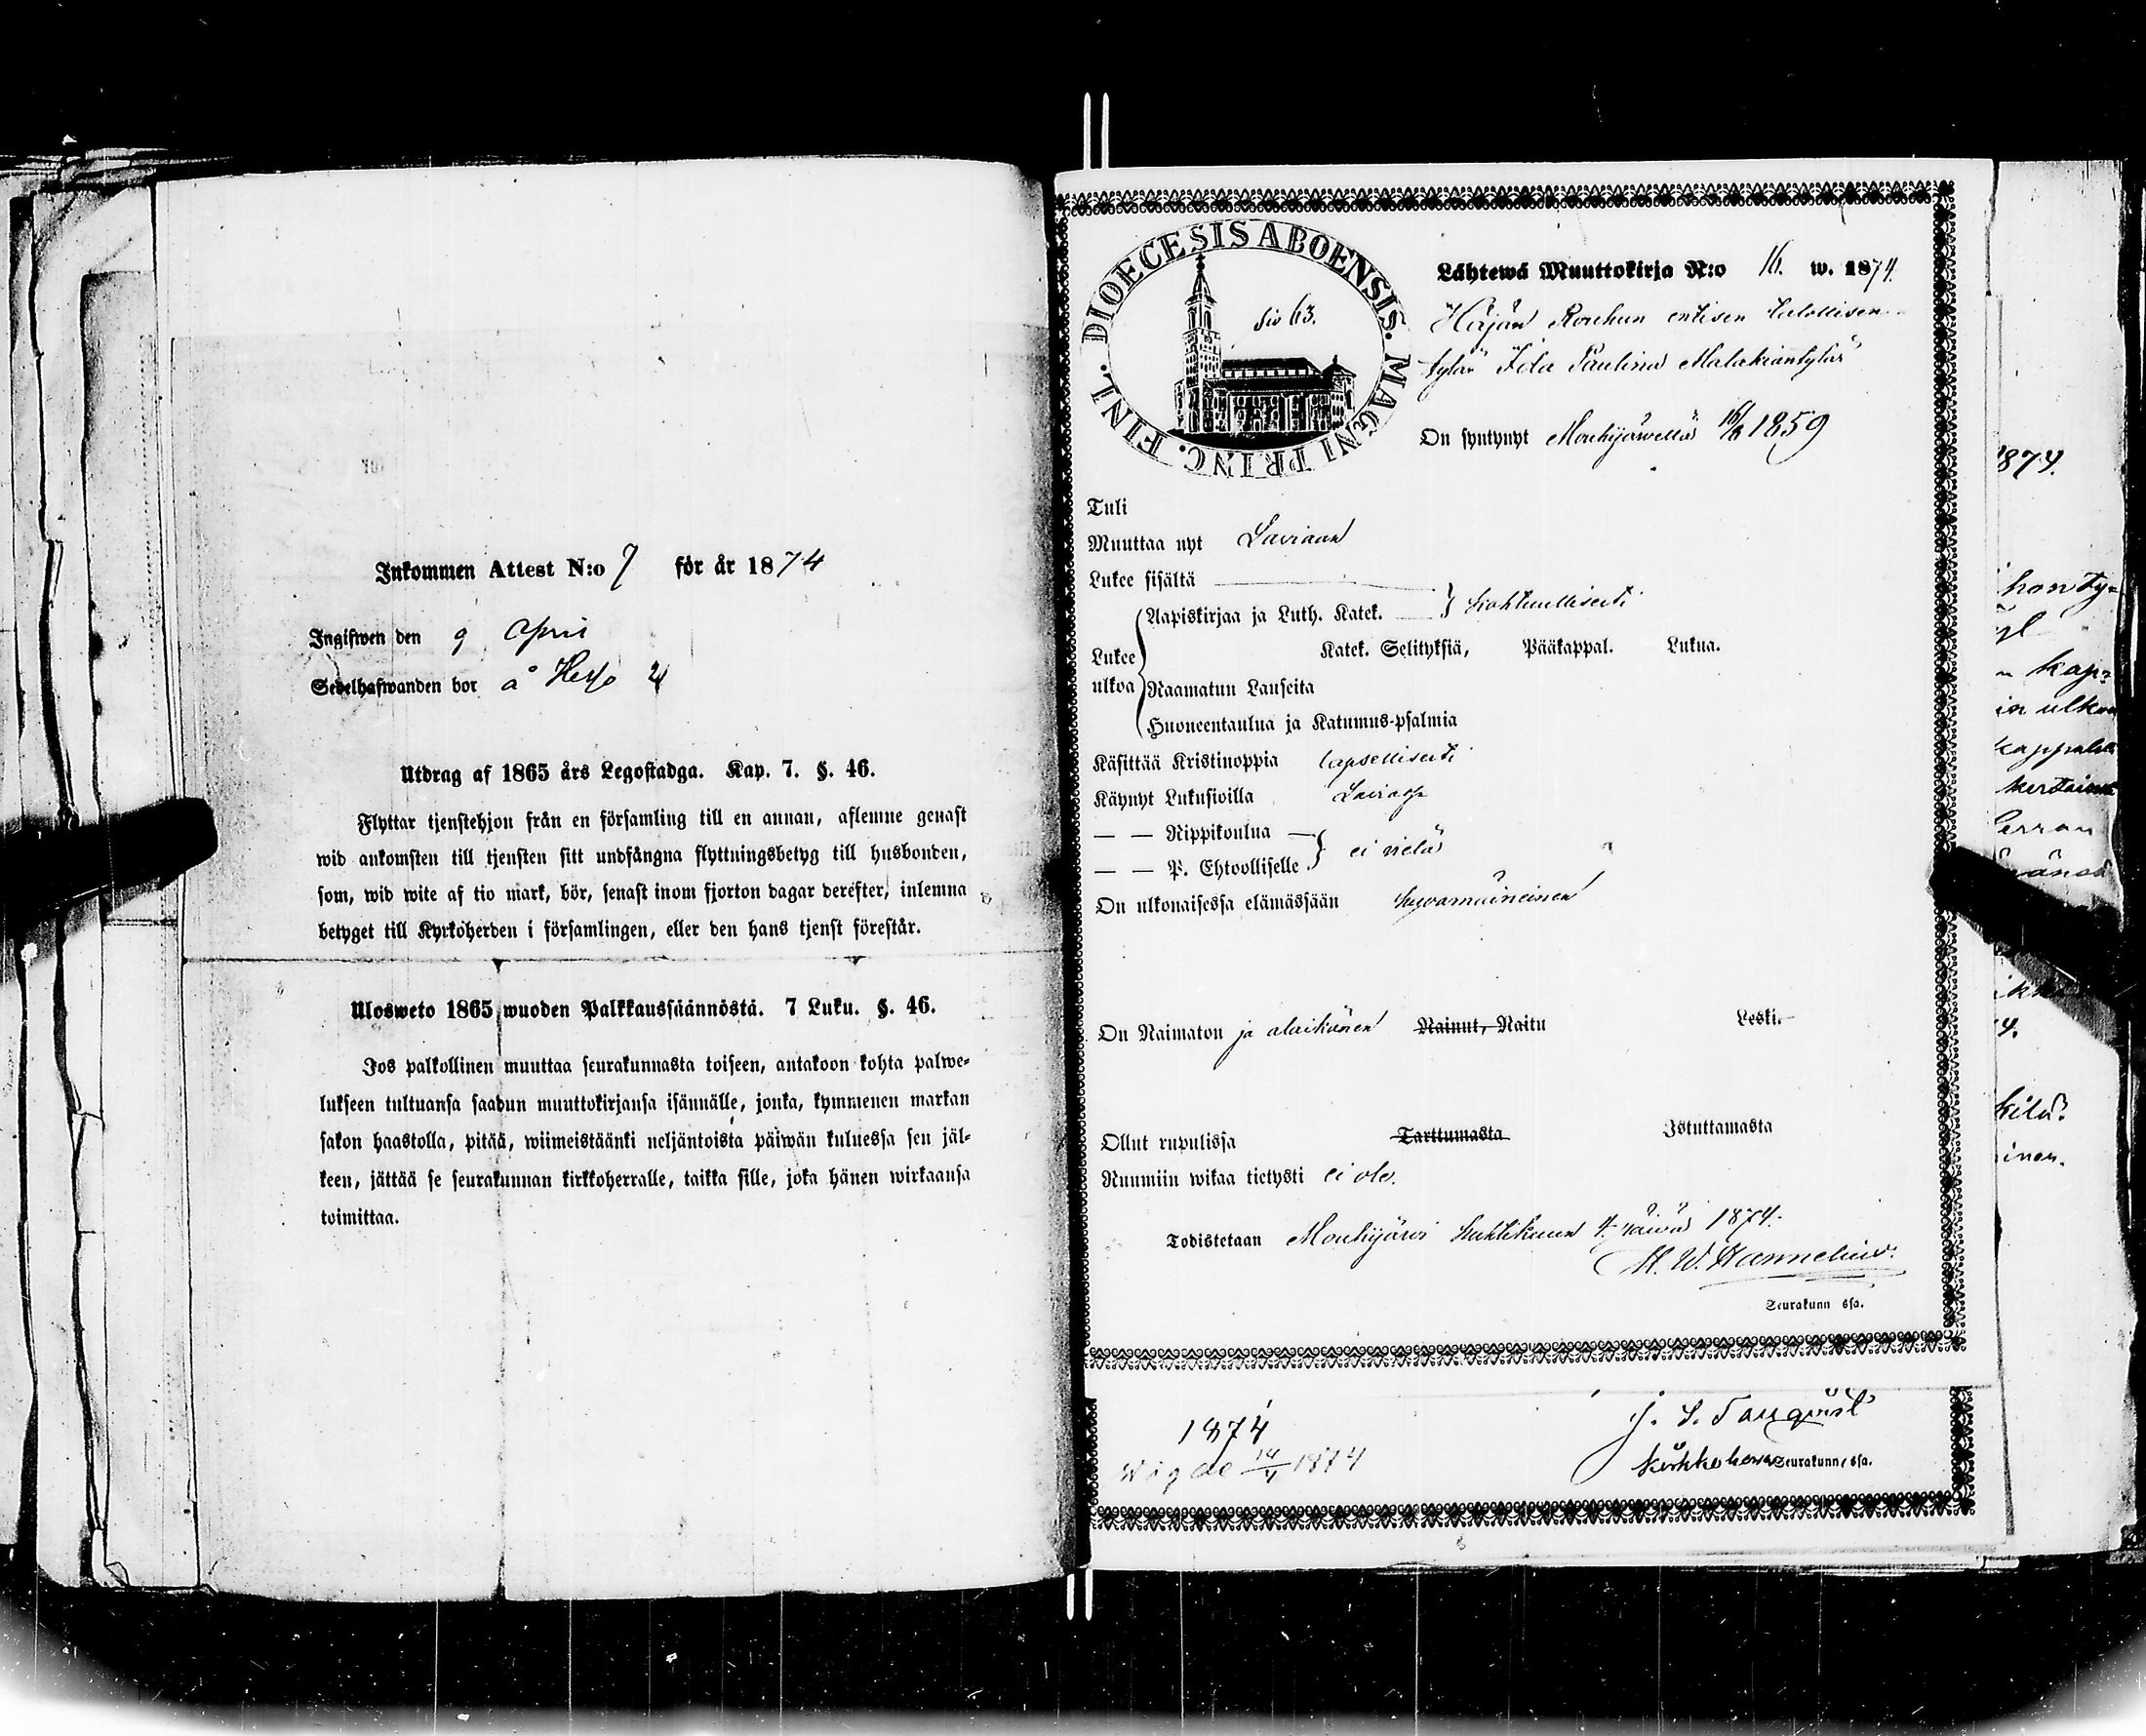 Inkommen Attest N:o 7 för år 1874
Ingifwen den 9 April
Sedelhafwanden bor å
Utdrag af 1865 års Legostadga. Kap. 7. §. 46.
Flyttar tjenstehjon från en församling till en annan, aflemne genast
wid ankomsten till tjensten sitt undfångna flyttningsbetyg till husbonden,
som, wid wite af tio mark, bör, senast inom fjorton dagar derefter, inlemna
betyget till Kyrkoherden i församlingen, eller den hans tjenst förestår.
Ulosweto 1865 wuoden Palkkaussäännöstä. 7 Luku. §. 46.
Jos palkollinen muuttaa seurakunnasta toiseen, antakoon kohta palwe-
lukseen tultuansa saadun muuttokirjansa isännälle, jonka, kymmenen markan
sakon haastolla, pitää, wiimeistäänki neljäntoista päiwän kuluessa sen jäl-
keen, jättää se seurakunnan kirkkoherralle, taikka sille, joka hänen wirkaansa
toimittaa.
DIOECESIS ABOENSIS. MAGNI PRINC. FINL.
siv 63.
Lähtewä Muuttokirja N:o 16. w. 1874.
Häijän Rouhun entisen talollisen
tytär Ida Paulina Malakiantytär
On syntynyt Mouhijärwellä 16/8 1859
Tuli
Muuttaa nyt Laviaan
Lukee sisältä
Aapiskirjaa ja Luth. Katek. kohtuullisesti
Lukee ulkoa
Katek. Selityksiä, Pääkappal. Lukua.
Raamatun Lauseita
Huoneentaulua ja Katumus-psalmia
Käsittää Kristinoppia lapsellisesti
Käynyt Lukusioilla Laviassa
— — Rippikoulua —
— — P. Ehtoolliselle ei vielä
On ulkonaisessa elämässään hyvämaineinen
On Naimaton ja alaikänen Nainut, Naitu Leski.
Ollut rupulissa Tarttumasta Istuttamasta
Ruumiin wikaa tietysti ei ole.
Todistetaan Mouhijärvi huhtikuun 4 päivä 1874.
H. W. Hannelius.
Seurakunn ssa.
1874
Wigde 14/4 1874
kirkkoherra Seurakunn, ssa.
1874.